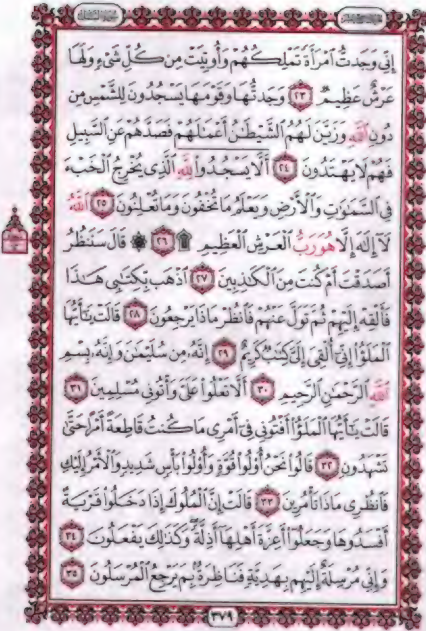 إِنِّي وَجَدتُّ ٱمْرَأَةً تَمْلِكُهُمْ وَأُوتِيَتْ مِن كُلِّ شَىْءٍ وَلَهَا
عَرْشٌ عَظِيمٌ ٢٣ وَجَدتُّهَا وَقَوْمَهَا يَسْجُدُونَ لِلشَّمْسِ مِن
دُونِ ٱللَّهِ وَزَيَّنَ لَهُمُ ٱلشَّيْطَٰنُ أَعْمَٰلَهُمْ فَصَدَّهُمْ عَنِ ٱلسَّبِيلِ
فَهُمْ لَا يَهْتَدُونَ ٢٤ أَلَّا يَسْجُدُوا۟ لِلَّهِ ٱلَّذِى يُخْرِجُ ٱلْخَبْءَ
فِى ٱلسَّمَٰوَٰتِ وَٱلْأَرْضِ وَيَعْلَمُ مَا تُخْفُونَ وَمَا تُعْلِنُونَ ٢٥ ٱللَّهُ
لَآ إِلَٰهَ إِلَّا هُوَ رَبُّ ٱلْعَرْشِ ٱلْعَظِيمِ ۩ ٢٦ ۞ قَالَ سَنَنظُرُ
أَصَدَقْتَ أَمْ كُنتَ مِنَ ٱلْكَٰذِبِينَ ٢٧ ٱذْهَب بِّكِتَٰبِى هَٰذَا
فَأَلْقِهْ إِلَيْهِمْ ثُمَّ تَوَلَّ عَنْهُمْ فَٱنظُرْ مَاذَا يَرْجِعُونَ ٢٨ قَالَتْ يَٰٓأَيُّهَا
ٱلْمَلَؤُا۟ إِنِّىٓ أُلْقِىَ إِلَىَّ كِتَٰبٌ كَرِيمٌ ٢٩ إِنَّهُۥ مِن سُلَيْمَٰنَ وَإِنَّهُۥ بِسْمِ
ٱللَّهِ ٱلرَّحْمَٰنِ ٱلرَّحِيمِ ٣٠ أَلَّا تَعْلُوا۟ عَلَىَّ وَأْتُونِى مُسْلِمِينَ ٣١
قَالَتْ يَٰٓأَيُّهَا ٱلْمَلَؤُا۟ أَفْتُونِى فِىٓ أَمْرِى مَا كُنتُ قَاطِعَةً أَمْرًا حَتَّىٰ
تَشْهَدُونِ ٣٢ قَالُوا۟ نَحْنُ أُو۟لُوا۟ قُوَّةٍ وَأُو۟لُوا۟ بَأْسٍ شَدِيدٍ وَٱلْأَمْرُ إِلَيْكِ
فَٱنظُرِى مَاذَا تَأْمُرِينَ ٣٣ قَالَتْ إِنَّ ٱلْمُلُوكَ إِذَا دَخَلُوا۟ قَرْيَةً
أَفْسَدُوهَا وَجَعَلُوٓا۟ أَعِزَّةَ أَهْلِهَآ أَذِلَّةً وَكَذَٰلِكَ يَفْعَلُونَ ٣٤
وَإِنِّى مُرْسِلَةٌ إِلَيْهِم بِهَدِيَّةٍ فَنَاظِرَةٌۢ بِمَ يَرْجِعُ ٱلْمُرْسَلُونَ ٣٥
٣٧٩